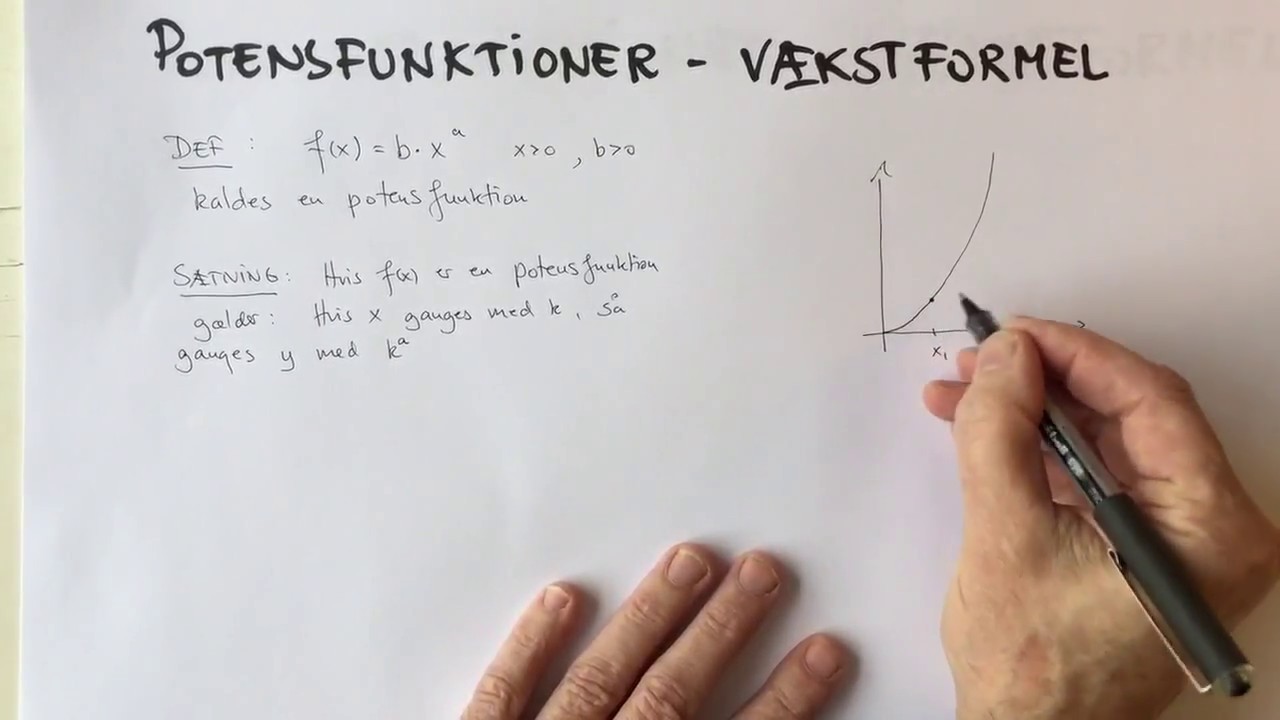 POTENSFUNKTIONER - VÆKSTFORMEL
DEF: f(x) = b · x^a x>0, b>0
kaldes en potensfunktion
SÆTNING: Hvis f(x) er en potensfunktion
gælder: Hvis x ganges med k, så
ganges y med k^a
x₁